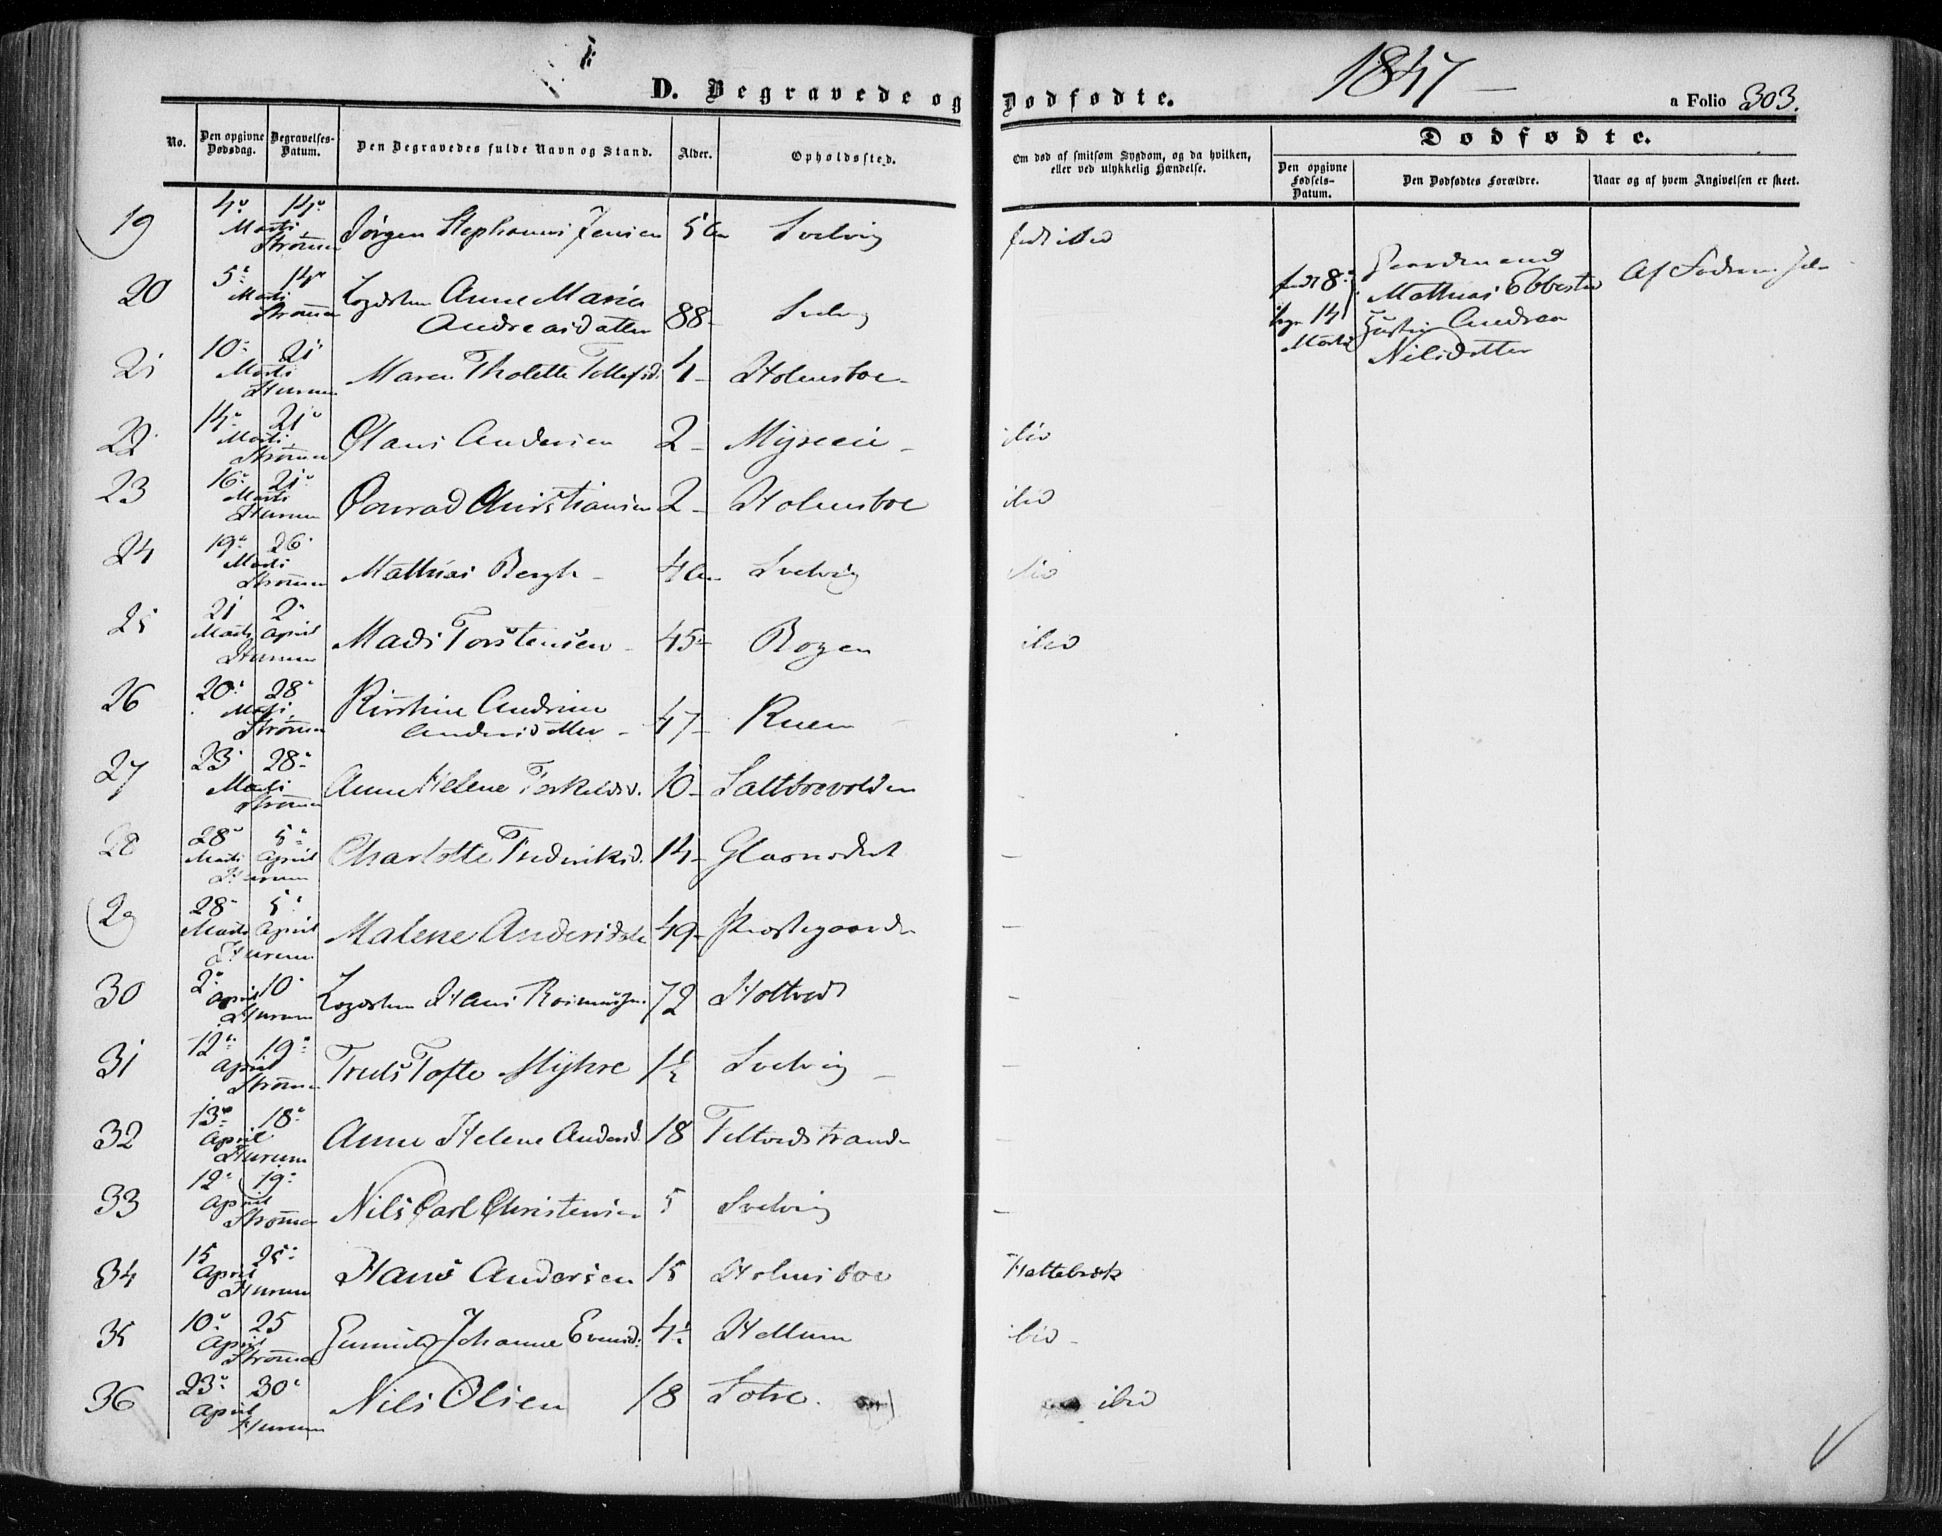 D. Begravede og Dødfødte.
1847
a Folio 303.
No.
Den opgivne Dødsdag.
Begravelses-Datum.
Den Begravedes fulde Navn og Stand.
Alder.
Opholdssted.
Om død af smitsom Sygdom, og da hvilken, eller ved ulykkelig Hændelse.
Dødfødte.
Den opgivne Fødsels-Datum.
Den Dødfødtes Forældre.
Naar og af hvem Angivelsen er skeet.
19 4 14 Marti Strømm Jørgen Stephanus Jensen Svelvig
20 5 14 Marti Strømm Logdslem Anne Maria
Andreasdatter 88 Svelvig
8 14 Marti
Gaardmand
Mathias
Hustru Andrea
Nilsdatter
Af Faderen
21 10 21 Marti Hurum Maren Tholette Tollefsd. 4 Holmsboe
22 14 21 Marti Strømm Olaus Andersen 2 Myreeie ibid
23 16 21 Marti Hurum Conrad Christiansen 2 Holmsboe ibid
24 19 26 Marti Strømm Mathias Bergh Svelvig ibid
25 21 Marti 2 April Hurum Mads Torstensen 45 Bogen ibid
26 20 28 Marti Strømm Kirstine Andrine
Andersdatter 47 Ruen
27 23 28 Marti Strømm Anne Helene Terkelsd. 10 Saltboevolden
28 28 Marti 5 April Hurum Charlotte Frederiksd. 14
29 28 Marti 5 April Hurum Malene Andersdatt 49 Præstegaarden
30 2 10 April Hurum Logdslem Hans Rasmussen 72 Holtvedt
31 12 19 April Strømm Truls Tofte Myhre 1½ Svelvig
32 13 18 April Hurum Anne Helene Andersd. 18 Toftvedstrand
33 12 19 April Strømm Nils Carl Christensen 5 Svelvig
34 15 25 April Hurum Hans Andersen 15 Holmsboe
35 10 25 April Strømm Gunild Johanne Evensd. Hellum ibid
36 23 30 April Hurum Nils Olsen 18 Sætre ibid